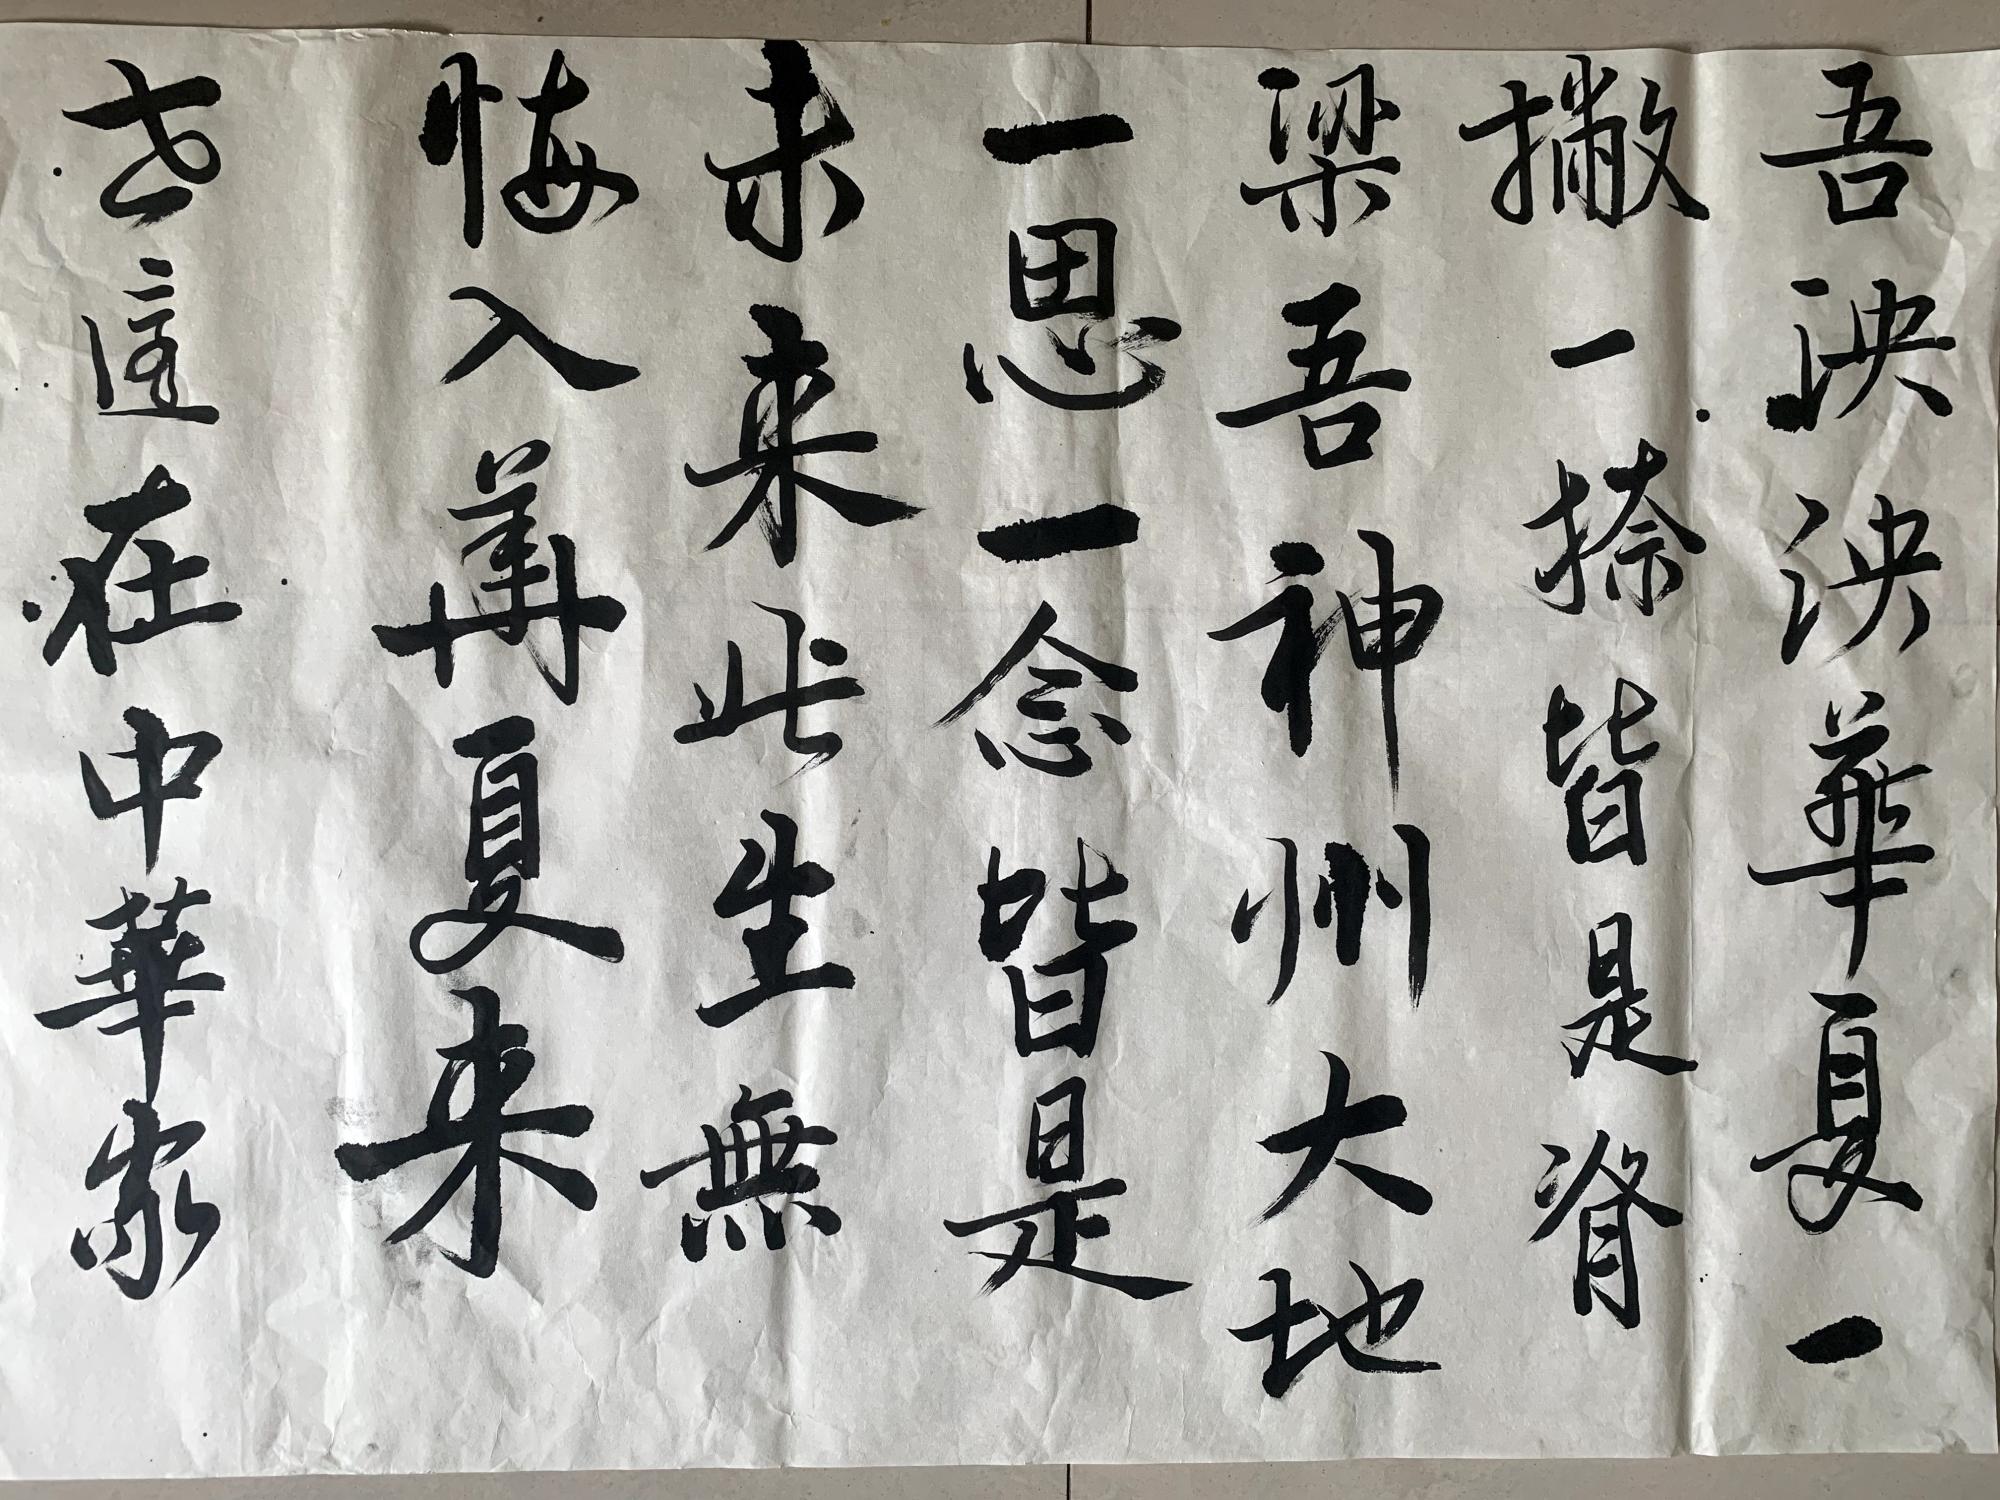 吾泱泱華夏一
撇一捺皆是脊
梁吾神州大地
一思一念皆是
未来此生無
悔入華夏来
世還在中華家